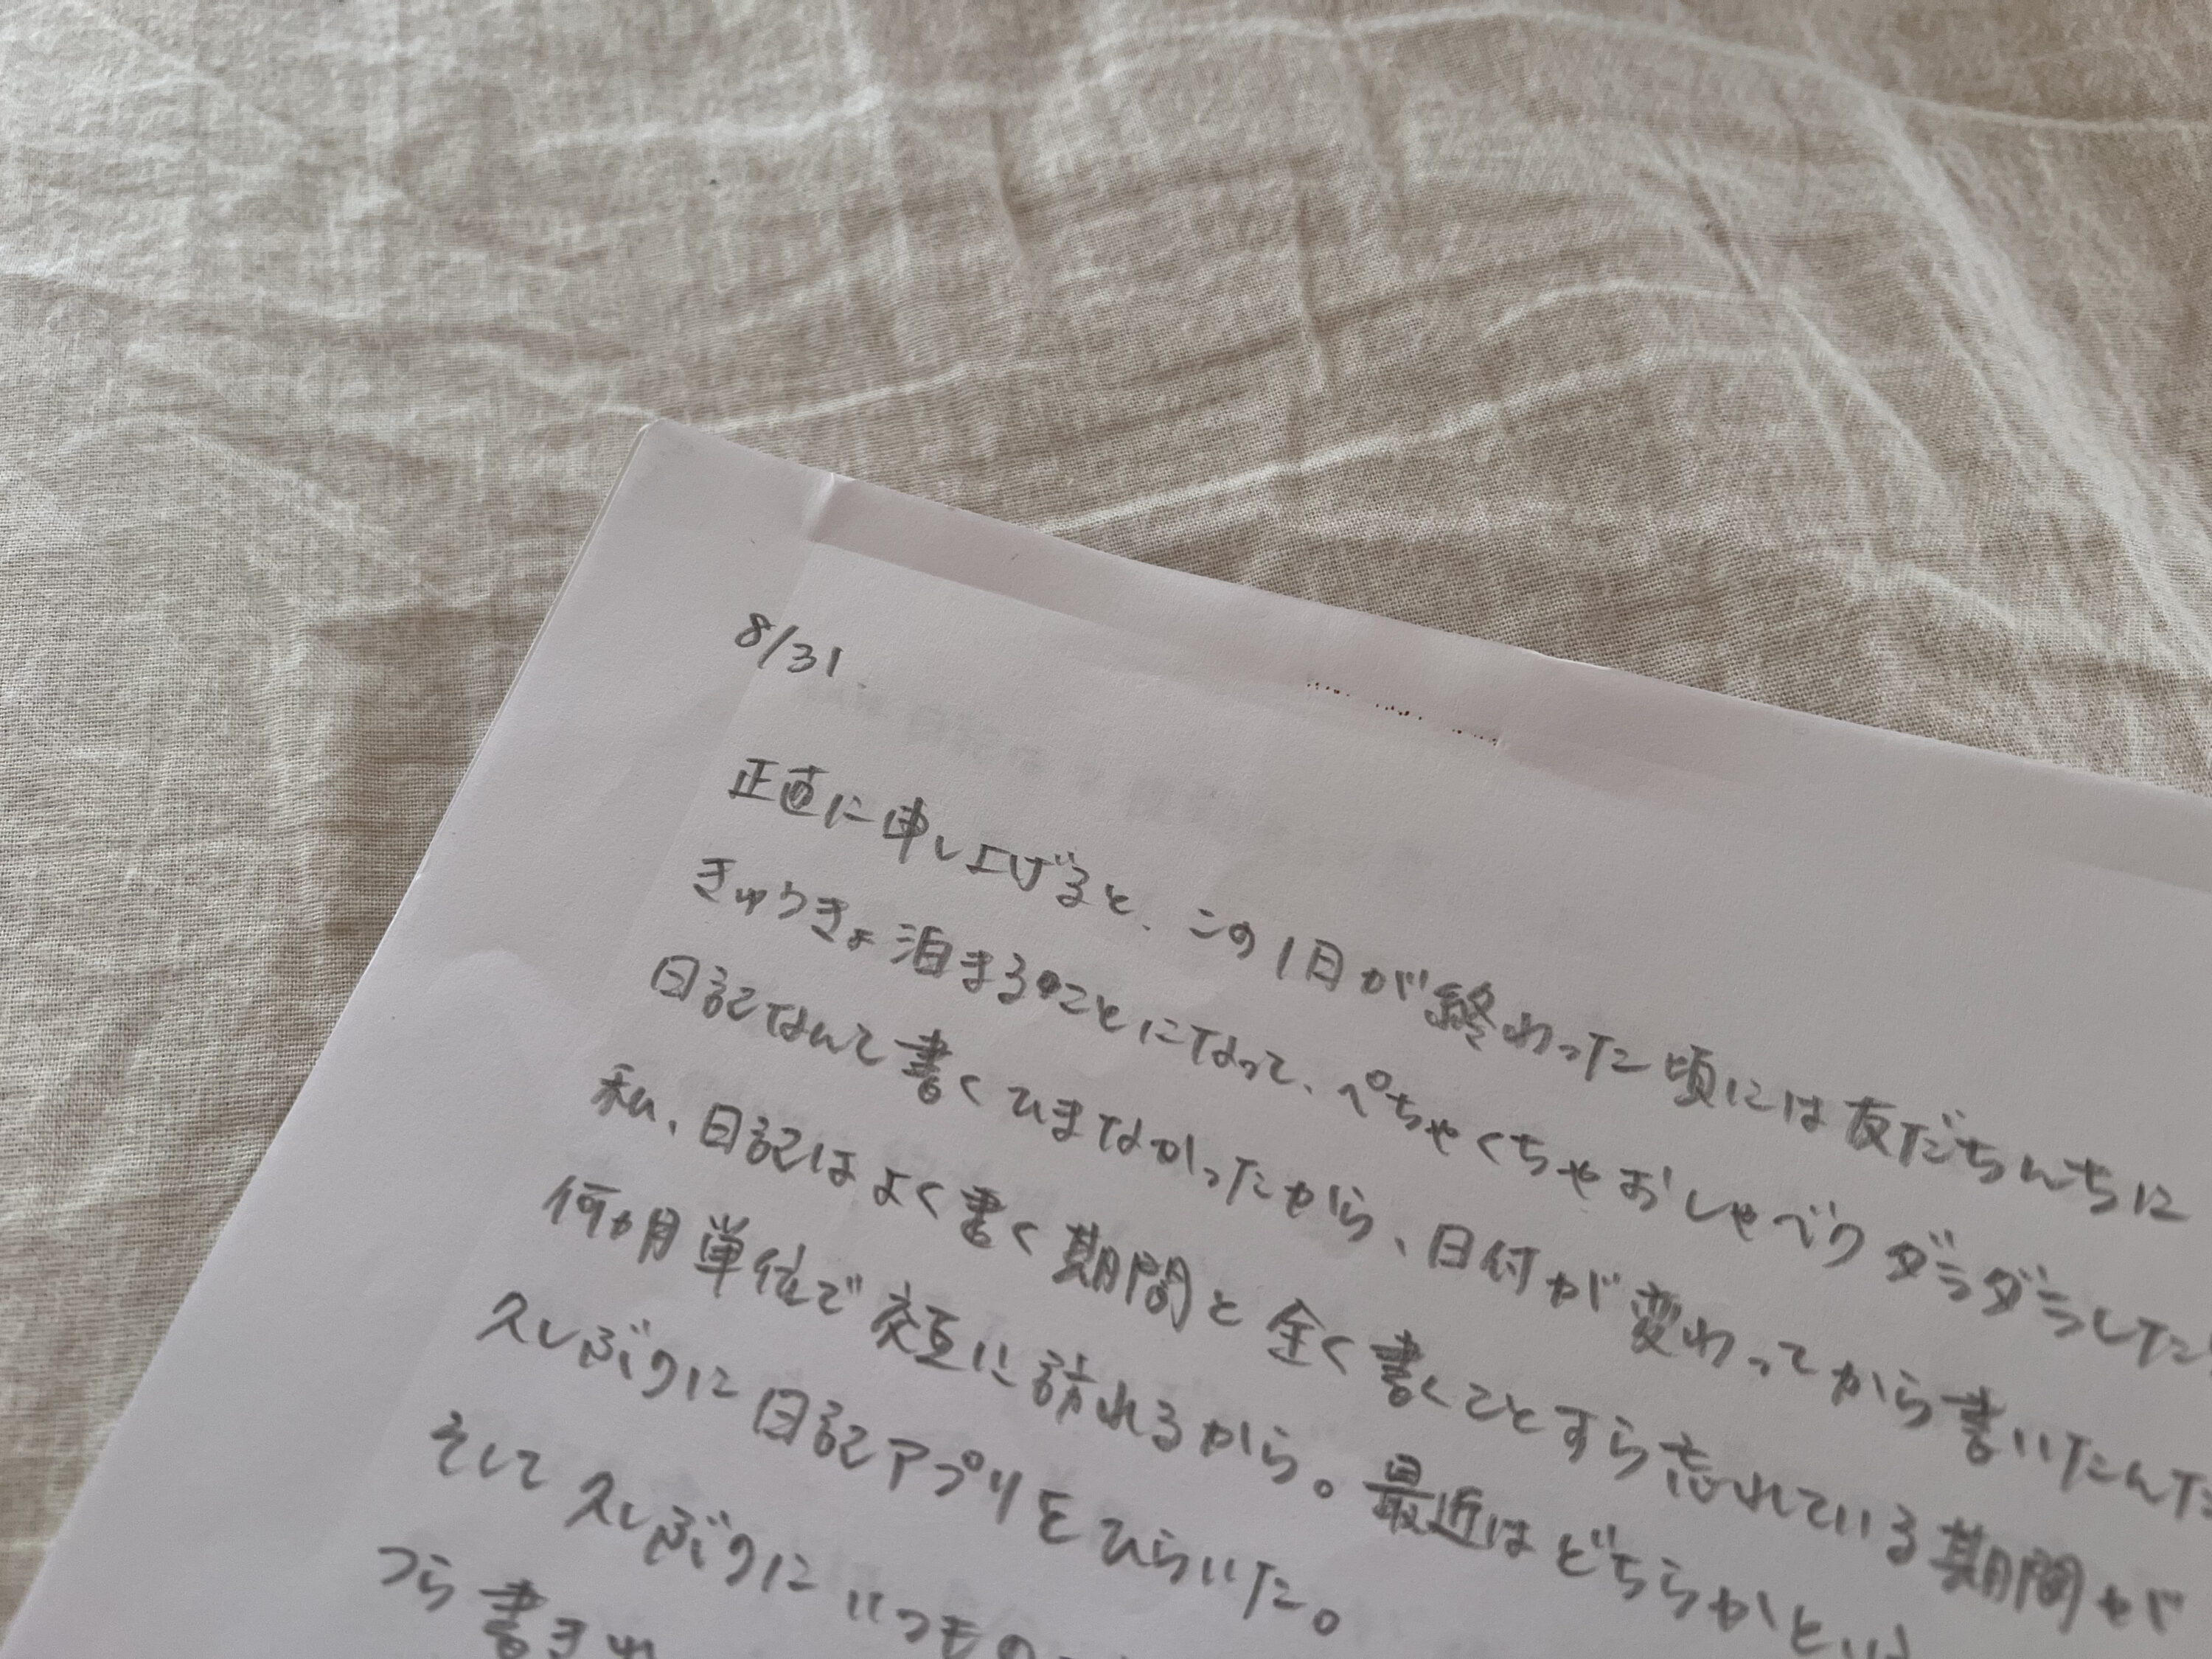 8/31.
正直に申し上げると、この1日が終わった頃には友だちんちに
きゅうきょ泊まることになって、ぺちゃくちゃおしゃべりダラダラした
日記なんて書くひまなかったから、日付が変わってから書いたんだ
私、日記はよく書く期間と全く書くことすら忘れている期間が
何ヵ月単位で交互に訪れるから。最近はどちらかとい
久しぶりに日記アプリをひらいた。
そして久しぶりにいつもの
つら書き